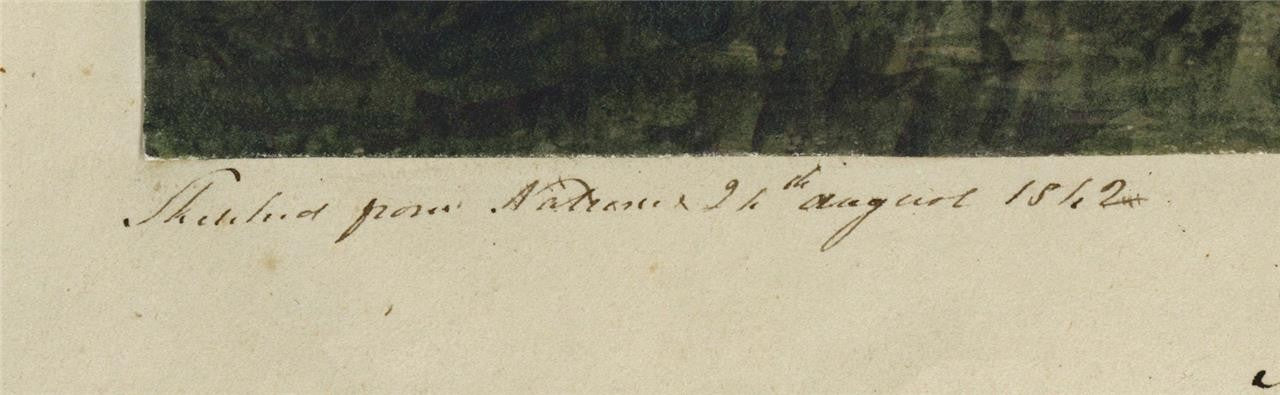 Sketched from Nature 24th august 1842